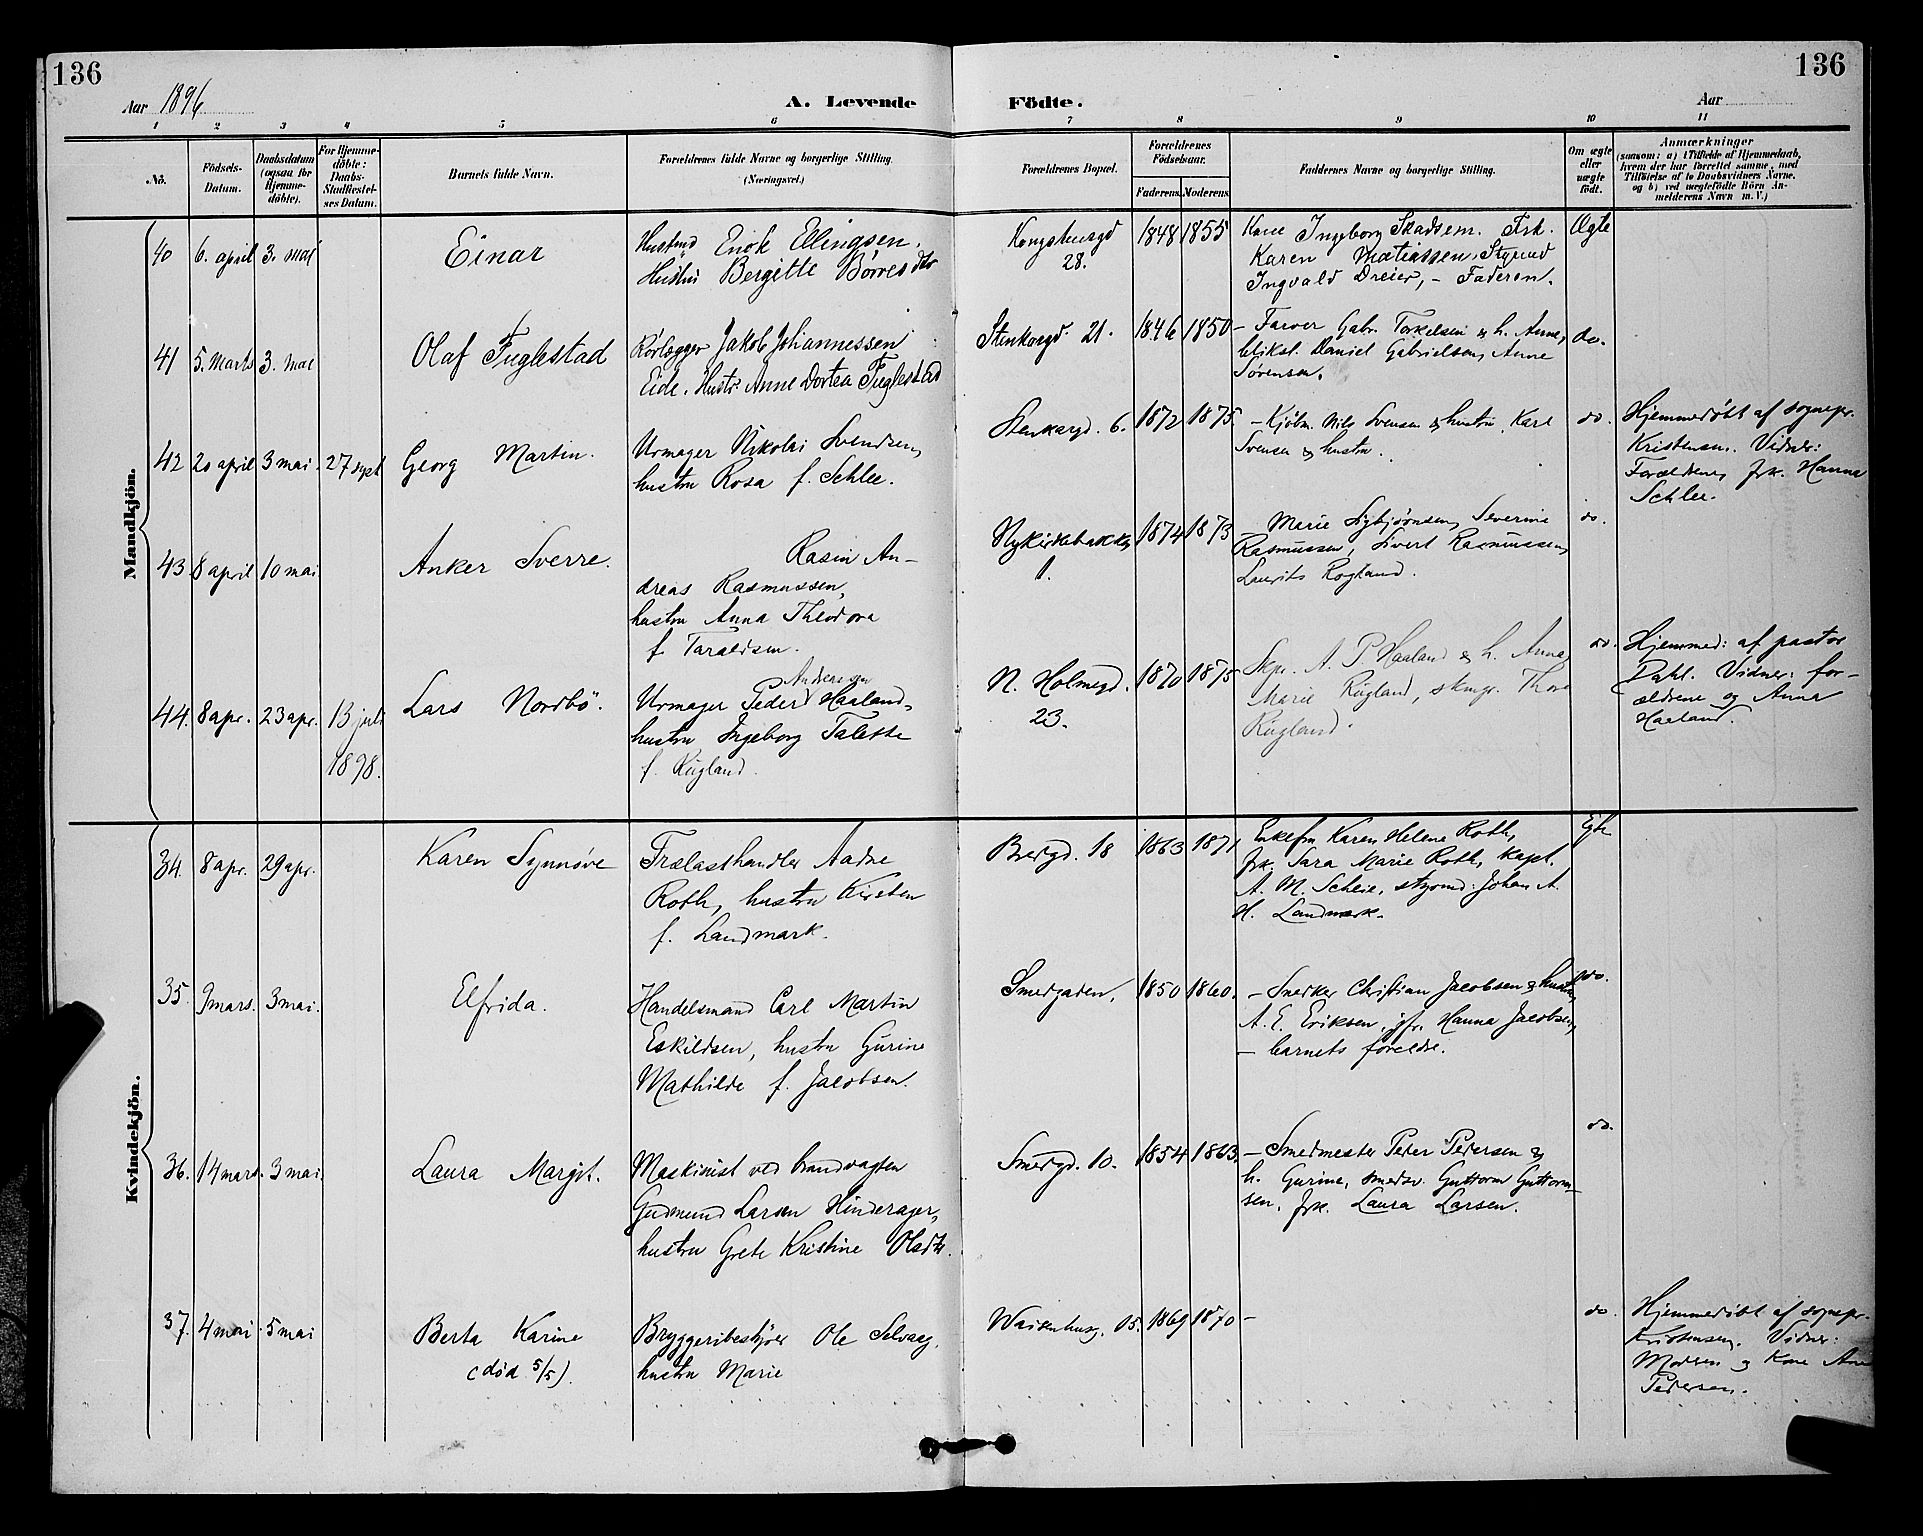 136
136
Aar 1896
A. Levende
Födte.
Aar
1 2 3 4 5 6 7 8 9 10 11
No.
Födsels-
Datum.
Daabsdatum
(ogsaa for
Hjemme-
döbte).
For Hjemme-
döbte:
Daabs-
Stadfæstel-
ses Datum.
Barnets fulde Navn.
Forældrenes fulde Navne og borgerlige Stilling.
(Næringsvei.)
Forældrenes Bopæl.
Forældrenes
Födselsaar.
Faderens. Moderens.
Faddernes Navne og borgerlige Stilling.
Om ægte
eller
uægte
födt.
Anmærkninger
(saasom: a) i Tilfælde af Hjemmedaab,
hvem der har forrettet samme, med
Tilföielse af to Daabsvidners Navne,
og b) ved uægtefödte Börn An-
melderens Navn m. V.)
Mandkjön.
40 6. april 3. mai
Einar
Enok Ellingsen.
Hustru Bergitte Børresdtr
28.
1848 1855
Kone Ingeborg Skadsem. Frk.
Karen Matiassen, Styrmd
Ingvald Dreier, - Faderen.
Ægte
41 5. Marts 3. mai
Olaf Fuglestad
Rørlægger Jakob Johannessen
Eide. Hustr: Anne Dortea Fuglestad
21.
1846 1850
- Farver Gabr. Torkelsen & h. Anne,
bliksl. Daniel Gabrielsen, Anne
Sørensen.
do.
42 20 april 3 mai. 27 sept
Georg Martin.
Urmager Nikolai Svendsen,
hustru Rosa f. Schlee.
6.
1872 1875
- Kjøbm. Nils Svensen & hustru, Karl
Svensen & hustru.
do.
Hjemmedøbt af sognepr.
Kristensen. Vidner:
Forældrene, frk. Hanna
Schlee.
43 8 april 10 mai
Anker Sverre.
Rasin An-
dreas Rasmussen,
hustru Anna Theodora
f. Taraldsen.
Nykirkebakken
1.
1874 1873
- Marie Sigbjørnsen, Severine
Rasmussen, Sivert Rasmussen,
Laurits Rogland.
do.
44. 8 apr. 23 apr. 13 juli
1898.
Lars Nordbö.
Andreassen
Urmager Peder Haaland,
hustru Ingeborg Talette
f. Rügland.
N. Holmegd.
23.
1870 1875
Skpr. A. P. Haaland & h. Anna,
Marie Rügland, Thora
Rügland.
do.
Hjemmed: af pastor
Dahl. Vidner: for-
ældrene og Anna
Haaland.
Kvindekjön.
34. 8 apr. 29 apr.
Karen Synnøve
Trælasthandler Aadne
Roth, hustru Kirsten
f. Landmark.
Bredgd. 18
1863 1871
Enkefru Karen Helene Roth,
frk. Sara Marie Roth, kapt.
A. M. Scheie, styrmd: Johan A.
H. Landmark.
35. 9 mars. 3 mai.
Elfrida.
Handelsmand Carl Martin
Eskildsen, hustru Gurine
Mathilde f. Jacobsen.
Smedgaden.
1850 1860.
- Snedker Christian Jacobsen & hustru,
A. E. Eriksen, jfr. Hanna Jacobsen,
- barnets foreldre.
do.
36. 14 mars. 3 mai.
Laura Margit.
Maskinist ved brandvagten
Gudmund Larsen Hinderager,
hustru Grete Kristine Olsdtr.
Smedgd. 10.
1854 1863.
- Smedmester Peder Pedersen &
h. Gurine, smedsv. Guttorm Guttorm-
sen, frk. Laura Larsen.
do.
37. 4 mai 5 mai
Berta Karine
(død 5/5).
Bryggeribestyrer Ole Selvaag,
hustru Marie
Waisenhusg. 15.
1869 1870 -
do.
Hjemmedøbt af sognepr.
Kristensen. Vidner:
Modsen & Kone Ane
Pedersen.